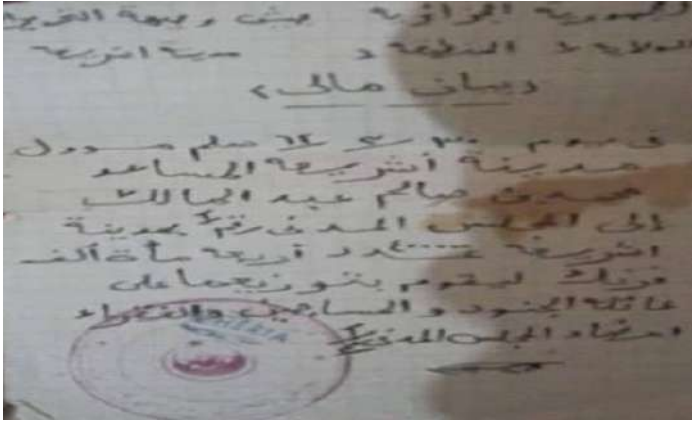 الجمهورية الجزائرية جيش وجبهة التحرير
الولاية 1 المنطقة 2 مدينة اشريعة
بيان مالي
في يوم 30 - 3 - 62 سلم مسؤول
مدينة أشريعة المساعد
محمد بن صالح عبد المالك
إلى المجلس المدني رقم بمدينة
اشريعة عدد أربعة مأة ألف
فرنك ليقوم بتوزيعها على
عائلة الجنود والمساجين والفقراء
امضاء المجلس المدني